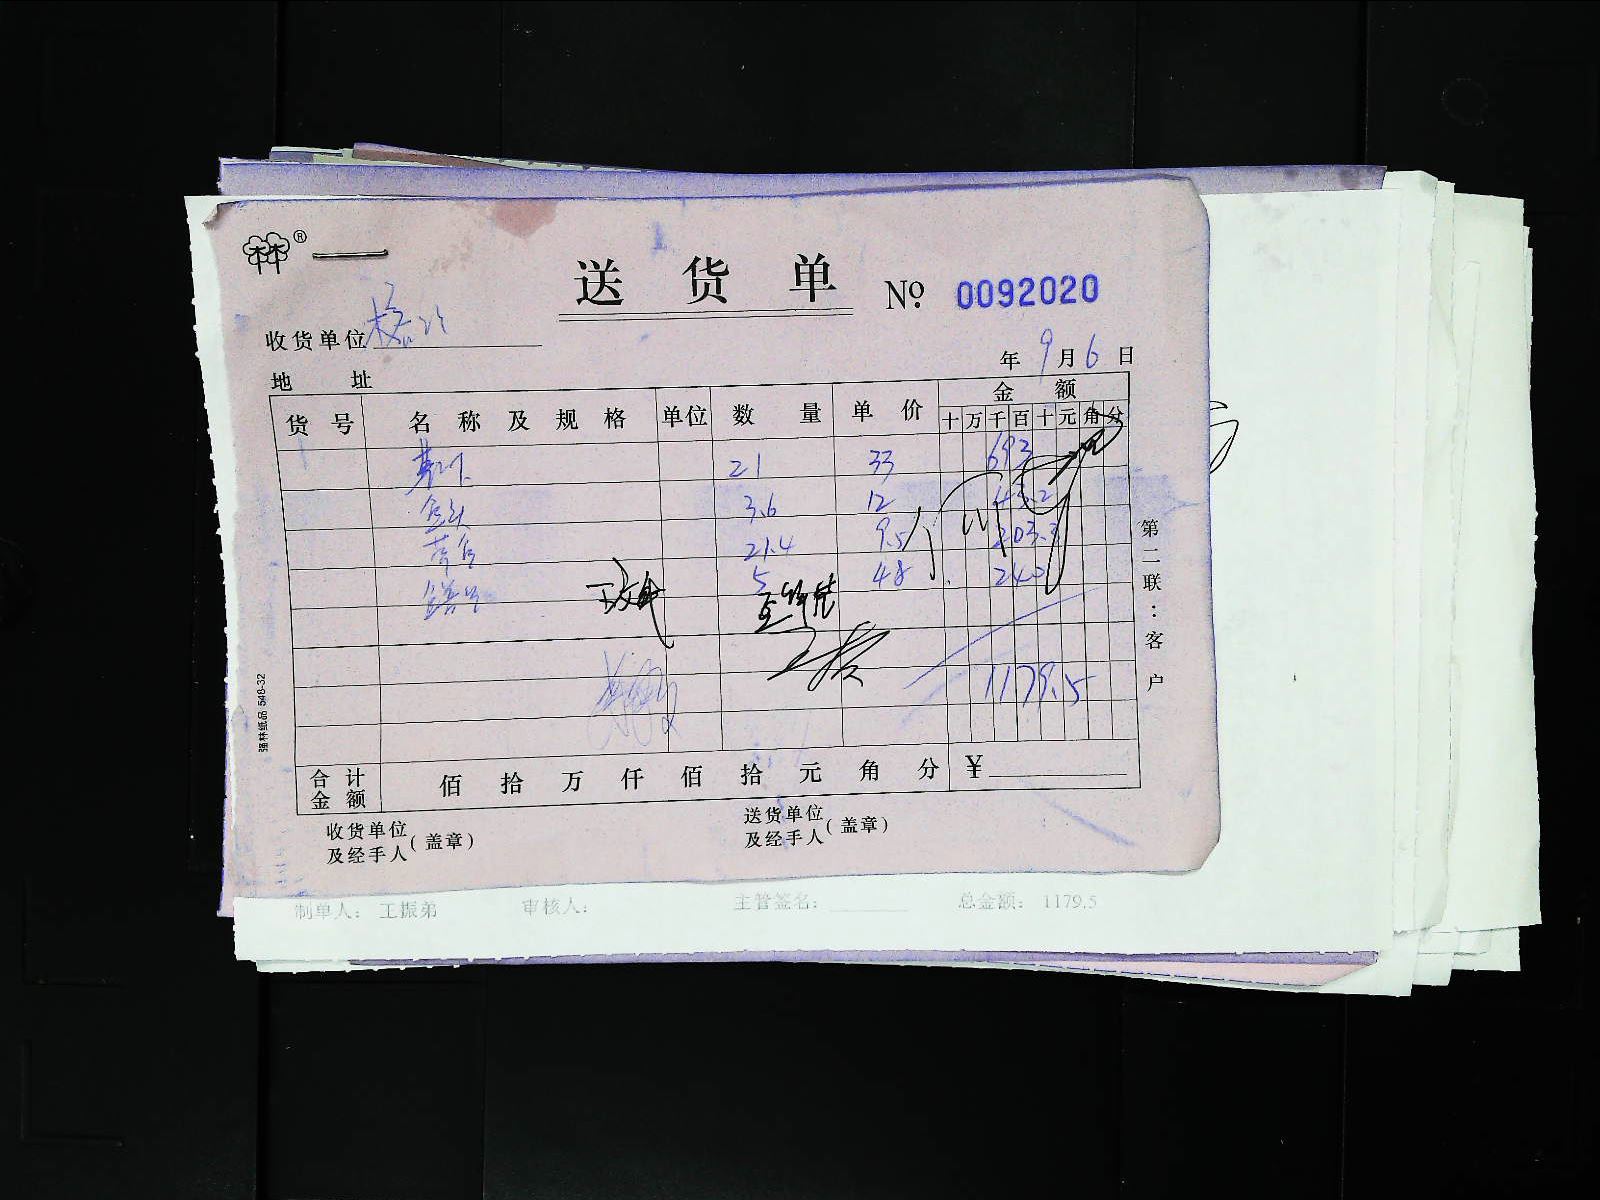 ®
送货单 № 0092020
收货单位
年 9 月 6 日
地址
货号 名称及规格 单位 数量 单价 金额
十 万 千 百 十 元 角 分
21 33 693
3.6 12 43.2
21.4 9.5 203.3
5 48 240
1179.5
合计金额 佰 拾 万 仟 佰 拾 元 角 分 ¥
收货单位及经手人(盖章) 送货单位及经手人(盖章)
第二联:客户
强林纸品 548-32
制单人: 王振弟 审核人: 主管签名: 总金额: 1179.5